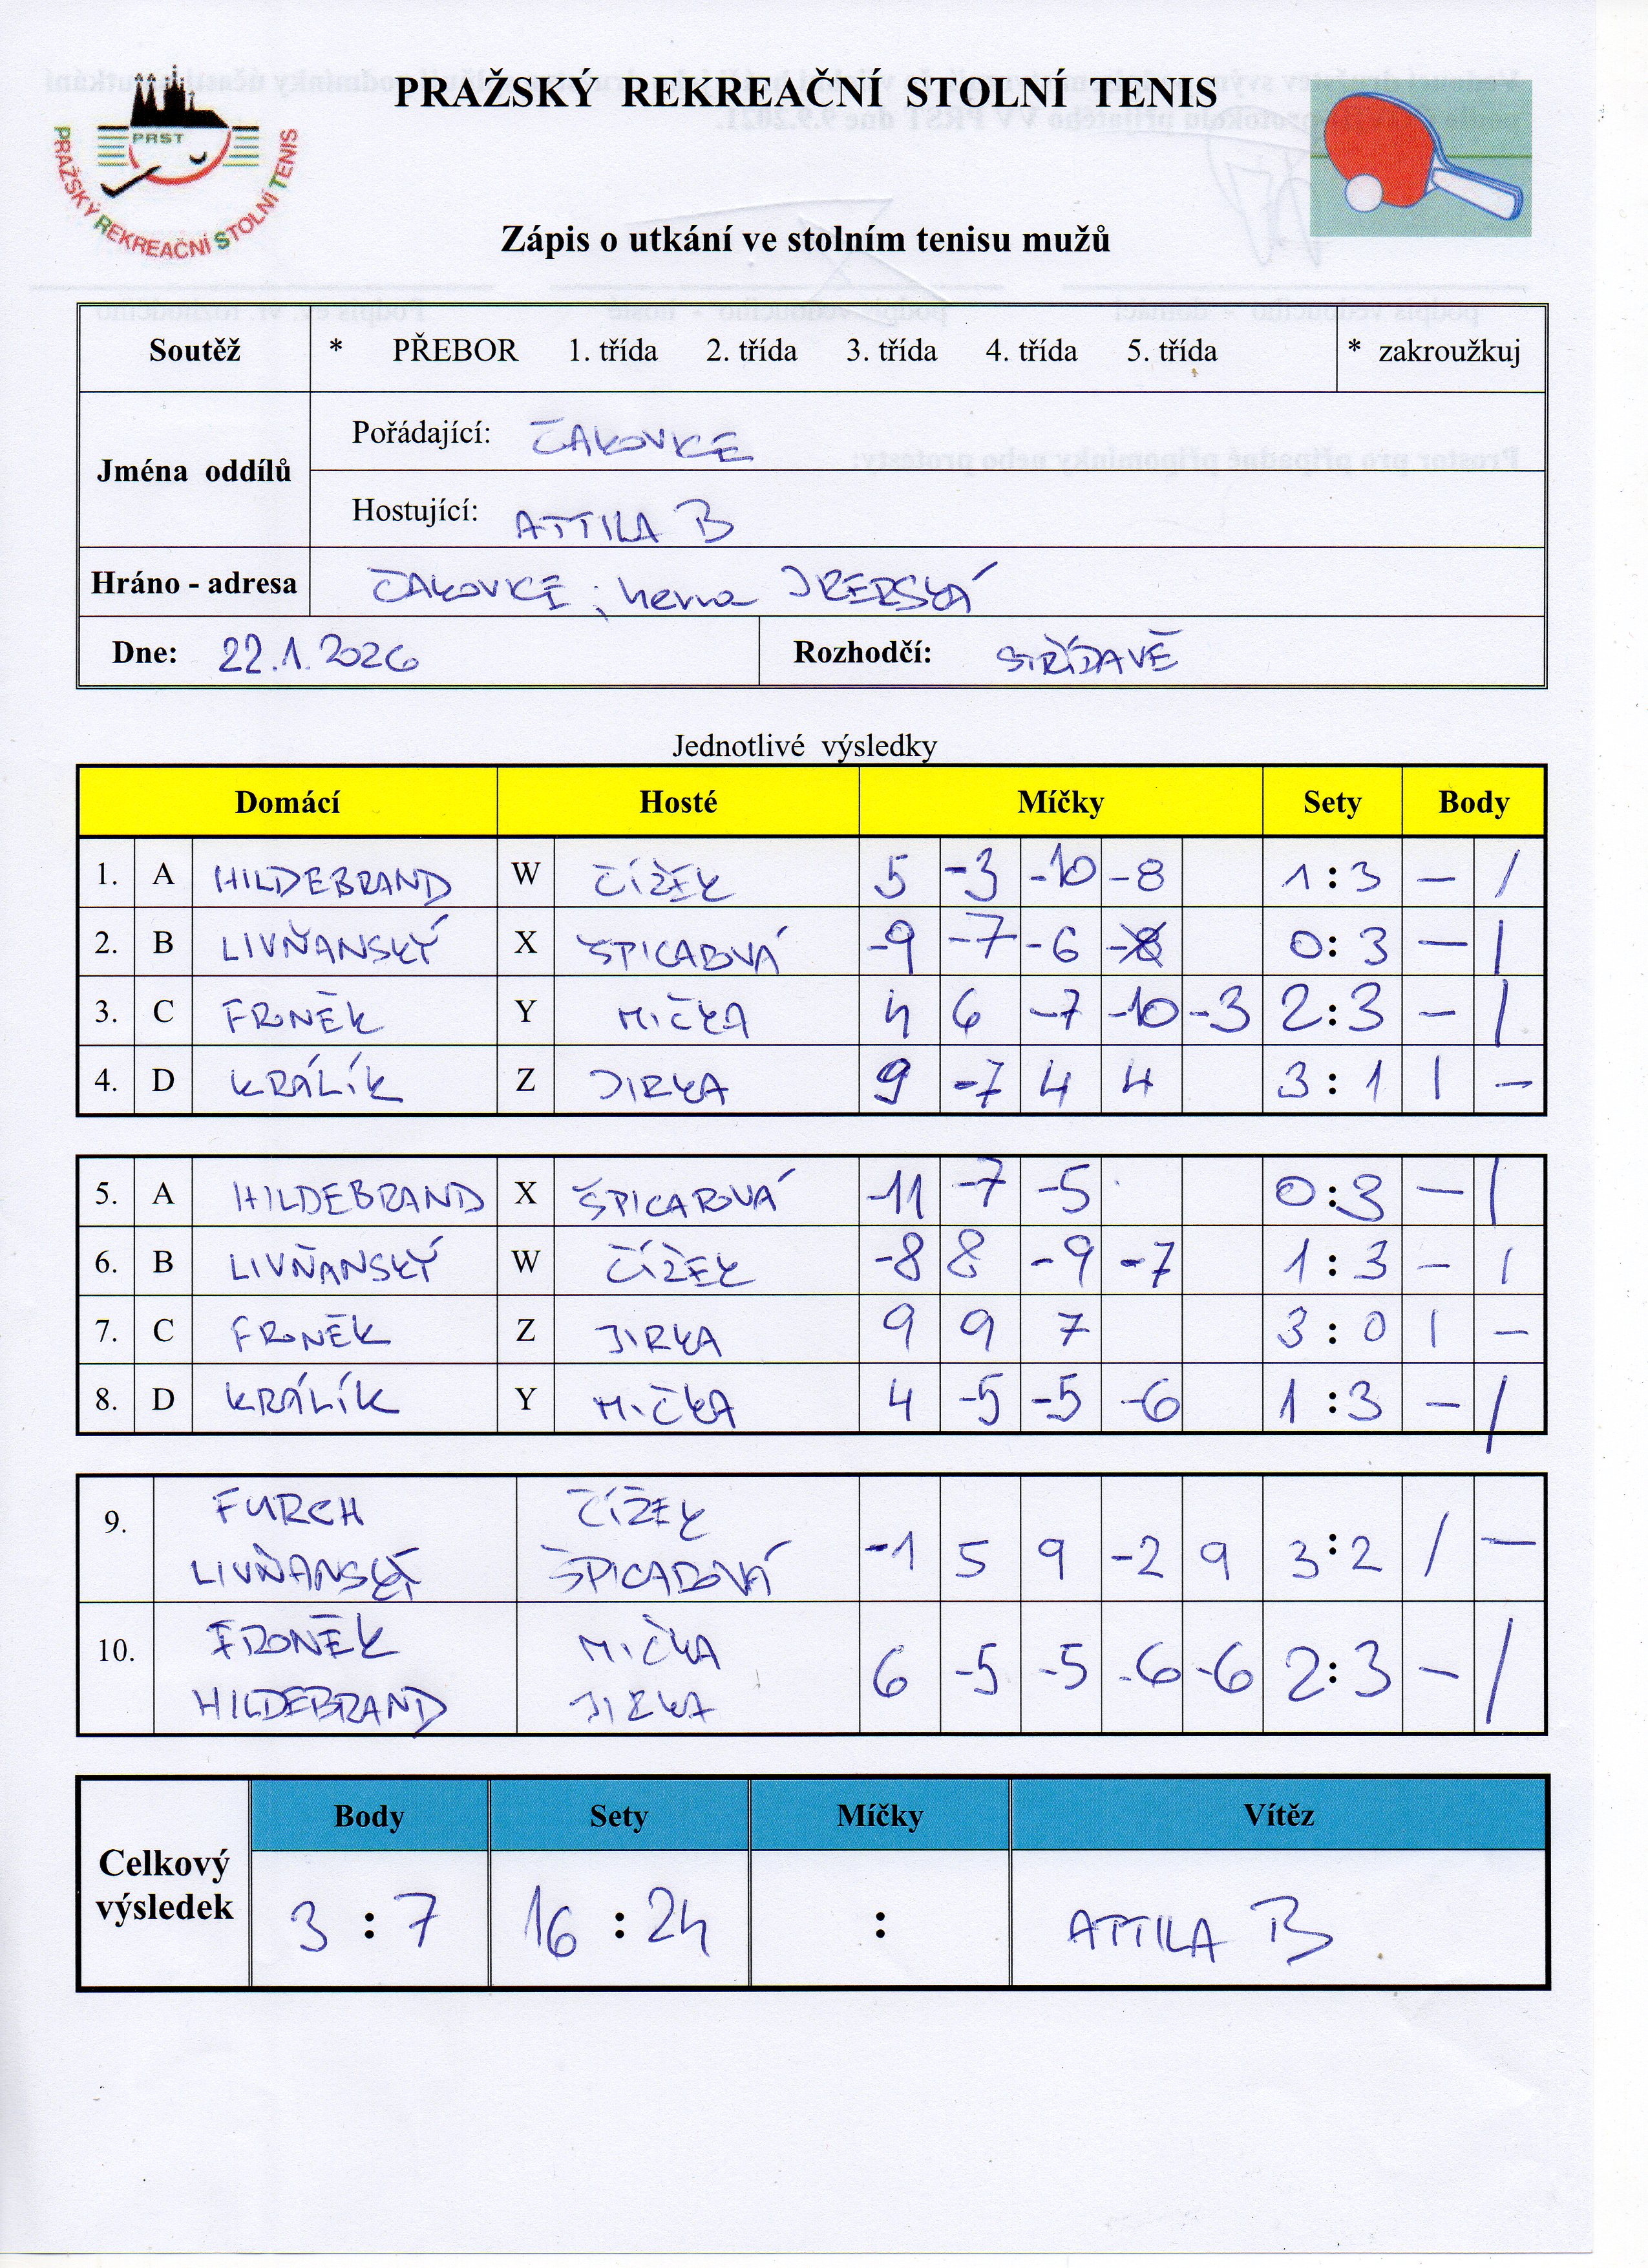 PRAŽSKÝ REKREAČNÍ STOLNÍ TENIS
PRST
PRAŽSKÝ REKREAČNÍ STOLNÍ TENIS
Zápis o utkání ve stolním tenisu mužů
Soutěž * PŘEBOR 1. třída 2. třída 3. třída 4. třída 5. třída * zakroužkuj
Jména oddílů
Pořádající: ČAKOVICE
Hostující: ATTILA B
Hráno - adresa ČAKOVICE ; herna
Dne: 22.1.2026 Rozhodčí: STŘÍDAVĚ
Jednotlivé výsledky
Domácí Hosté Míčky Sety Body
1. A HILDEBRAND W ČÍŽEK 5 -3 -10 -8 1 : 3 — /
2. B LIVŇANSKÝ X ŠPICAROVÁ -9 -7 -6 0 : 3 — |
3. C FRONĚK Y MIČKA 4 6 -7 -10 -3 2 : 3 — |
4. D KRÁLÍK Z JIRKA 9 -7 4 4 3 : 1 | —
5. A HILDEBRAND X ŠPICAROVÁ -11 -7 -5 0 : 3 — |
6. B LIVŇANSKÝ W ČÍŽEK -8 8 -9 -7 1 : 3 — |
7. C FRONĚK Z JIRKA 9 9 7 3 : 0 | —
8. D KRÁLÍK Y MIČKA 4 -5 -5 -6 1 : 3 — /
9. FURCH ČÍŽEK
LIVŇANSKÝ ŠPICAROVÁ -1 5 9 -2 9 3 : 2 / —
10. FRONĚK MIČKA
HILDEBRAND JIRKA 6 -5 -5 -6 -6 2 : 3 — /
Celkový výsledek
Body Sety Míčky Vítěz
3 : 7 16 : 24 : ATTILA B